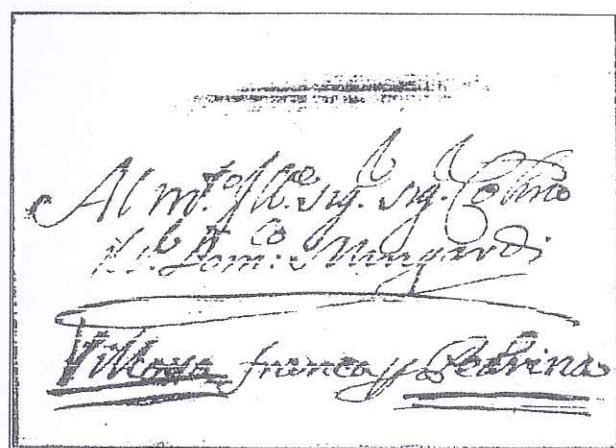 Al m.to Ill.e sig.r sig.r Col.mo
il s.r Dom.co Mongardi
Villa franca Pedrina